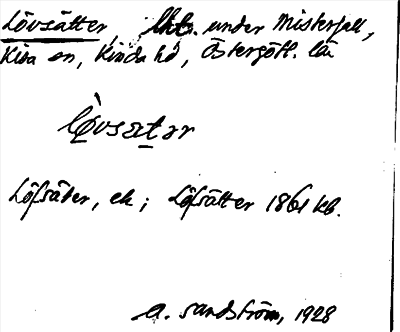 Lövsätter, lht. under Misterfall,
Kisa sn, Kinda hd, Östergötl. län
lò̱vsat̲ər
Löfsäter, ek; Löfsätter 1861 kb.
A. Sandström, 1928